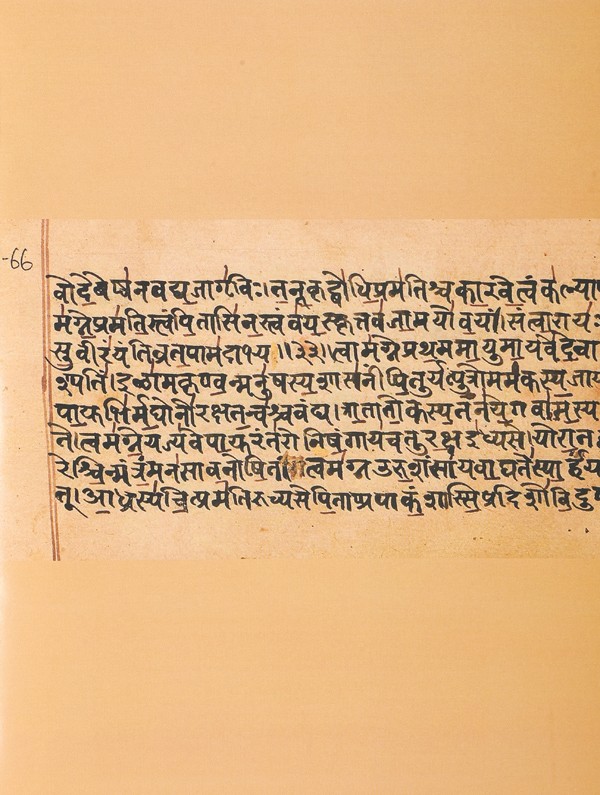 -66
वो देवेष्वनवद्य जागृविः। तनूकृद्बोधि प्रमतिश्च कारवे त्वं कल्या
मग्ने प्रमतिस्त्वं पितासि नस्त्वं वयस्कृत्तव जामयो वयं। सं त्वा रायः
सुवीरं यंति व्रतपामदाभ्य ॥३३॥ त्वामग्ने प्रथममायुमायवे देवा
श्पतिं। इळामकृण्वन्मनुषस्य शासनीं पितुर्यत्पुत्रो ममकस्य जा
पायुभिर्मघोनो रक्ष तन्वश्च वंद्य। त्राता तोकस्य तनये गवामस्य
ते। त्वमग्ने यज्यवे पायुरंतरो निषंगाय चतुरक्ष इध्यसे। यो रात
रेश्चिन्मंत्रं मनसा वनोषि तं। त्वमग्न उरुशंसाय वाघते स्पार्हं य
त्। आध्रस्य चित्प्रमतिरुच्यसे पिता प्र पाकं शास्सि प्र दिशो विदु